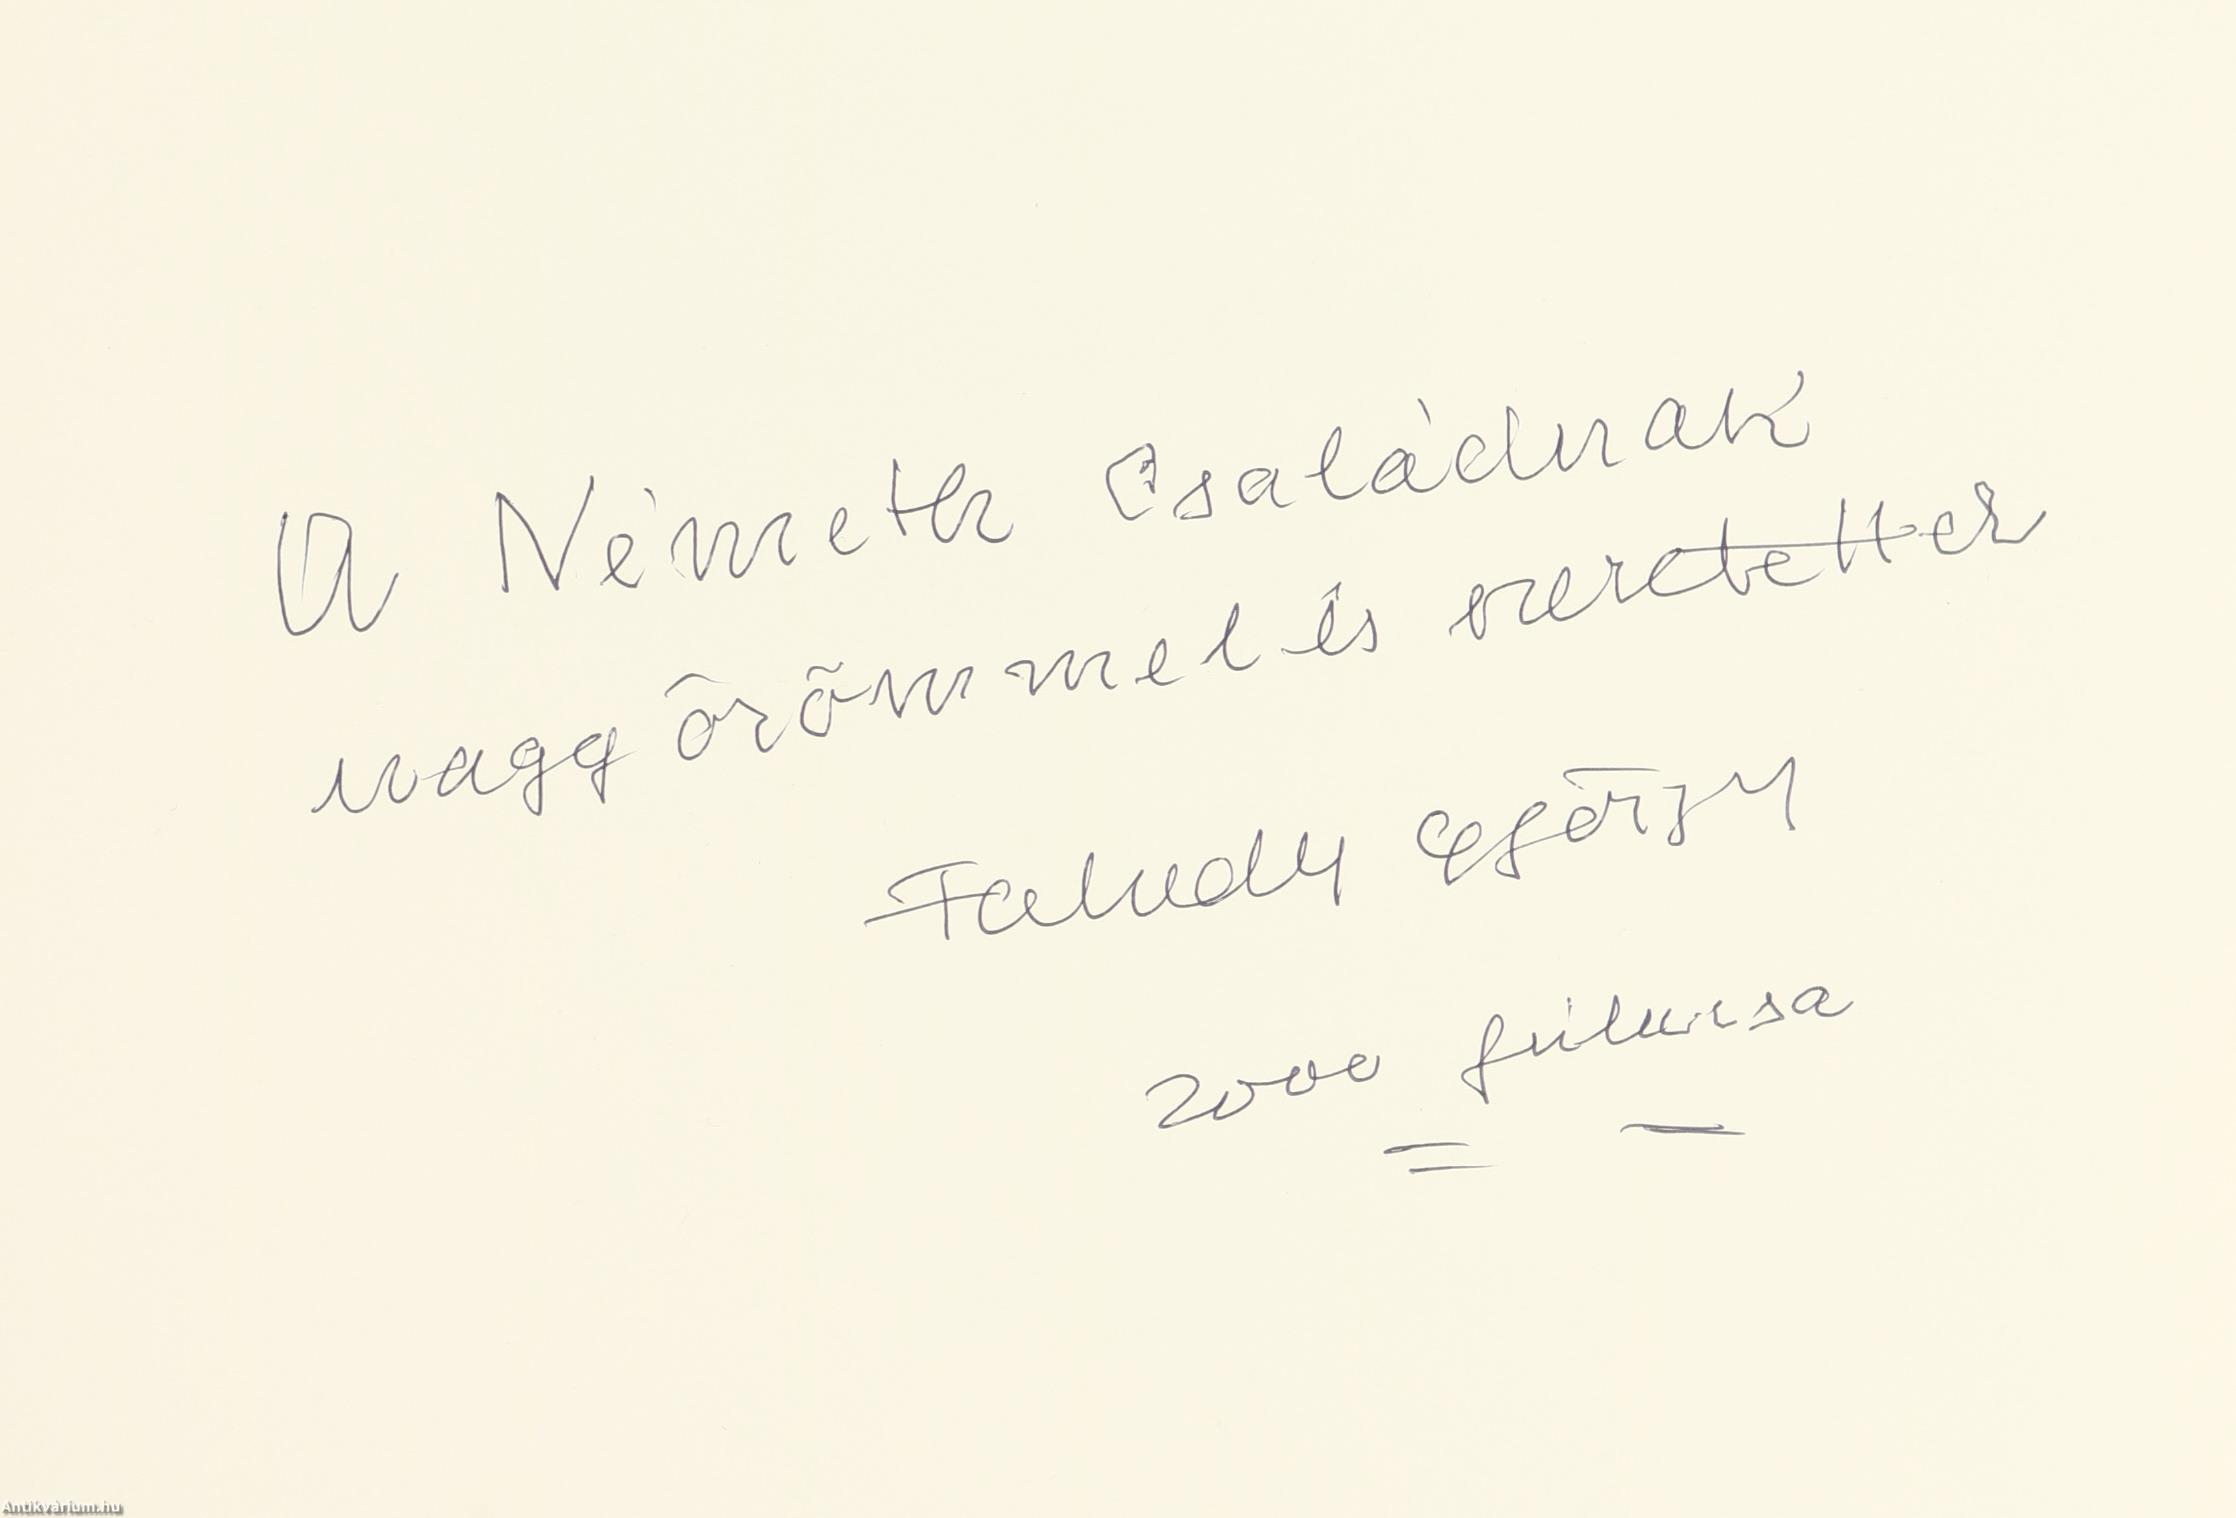 A Németh Családnak
nagy örömmel és szeretettel
Faludy György
2000
Antikvárium.hu